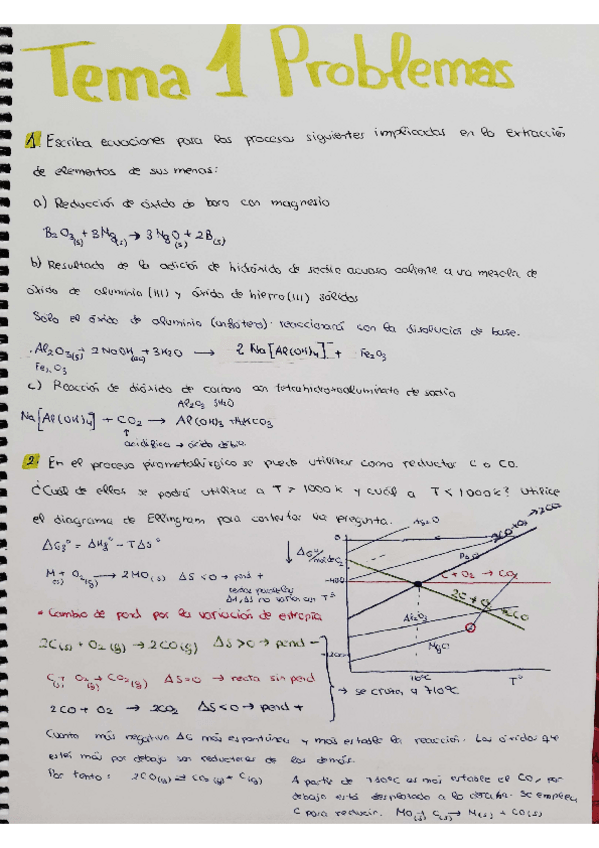 Tema 1 Problemas
1. Escriba ecuaciones para los procesos siguientes implicados en la extracción
de elementos de sus menas:
a) Reducción de óxido de boro con magnesio
B₂O₃(s) + 3Mg(s) → 3MgO(s) + 2B(s)
b) Resultado de la adición de hidróxido de sodio acuoso caliente a una mezcla de
óxido de aluminio (III) y óxido de hierro (III) sólidos
Solo el óxido de aluminio (anfótero) reaccionará con la disolución de base.
Al₂O₃(s) + 2NaOH(ac) + 3H₂O → 2 Na[Al(OH)₄] + Fe₂O₃
Fe₂O₃
c) Reacción de dióxido de carbono con tetrahidroxoaluminato de sodio
Al₂O₃ 3H₂O
Na[Al(OH)₄] + CO₂ → Al(OH)₃ + NaHCO₃
↑
acidifica → ácido débil
2. En el proceso pirometalúrgico se puede utilizar como reductor C o CO.
¿Cuál de ellos se podrá utilizar a T > 1000 K y cuál a T < 1000 K? Utilice
el diagrama de Ellingram para contestar la pregunta.
ΔG° = ΔH° - TΔS°
M(s) + O₂(g) → 2MO(s) ΔS < 0 → pend +
* Cambio de pend por la variación de entropía
2C(s) + O₂(g) → 2CO(g) ΔS > 0 → pend -
C(s) + O₂ → CO₂(g) ΔS = 0 → recta sin pend
2CO + O₂ → 2CO₂ ΔS < 0 → pend +
→ se cruza a 710°C
↓ ΔG°
0
-400
Ag₂O
C + O₂ → CO₂
Al₂O₃
MgO
710°C
T°
Cuanto más negativa ΔG más espontánea y más estable la reacción. Los óxidos que
estén más por debajo son reductores de los demás.
Por tanto: 2CO(g) ⇌ CO₂(g) + C(s)
A partir de 710°C es más estable el CO, por
debajo está desplazado a la derecha. Se emplea
C para reducir. MO(s) + C(s) → M(s) + CO(g)